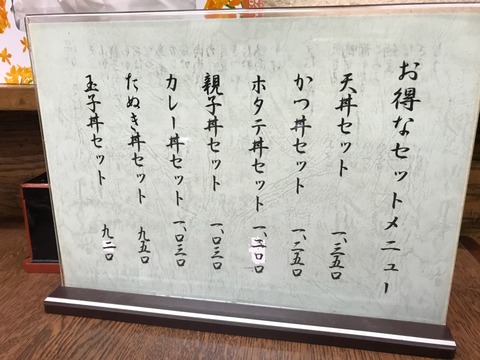 お得なセットメニュー
天丼セット 一、三五〇
かつ丼セット 一、二五〇
ホタテ丼セット 一、二〇〇
親子丼セット 一、〇三〇
カレー丼セット 一、〇三〇
たぬき丼セット 九五〇
玉子丼セット 九二〇